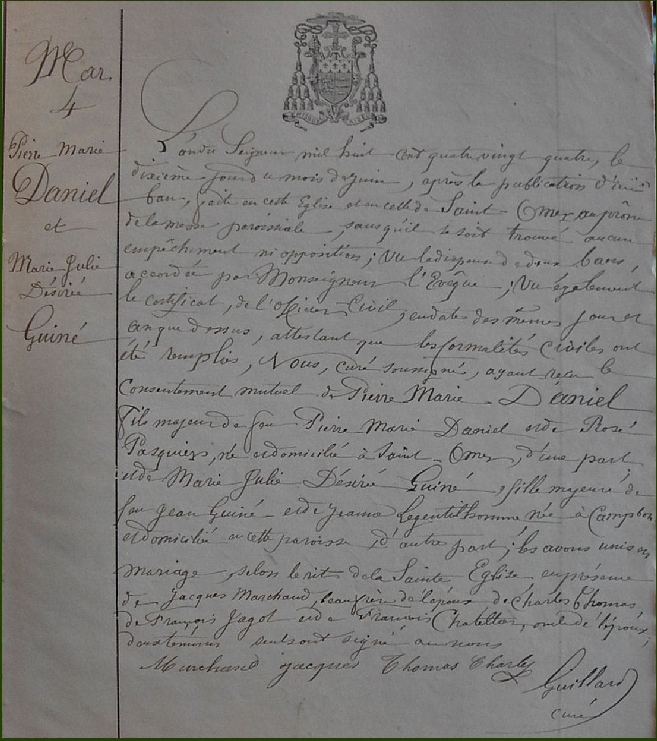 Mar.
4
Pierre Marie
Daniel
et
Marie Julie
Désiré
Guiné
L'an du Seigneur mil huit cent quatre vingt quatre, le
dixième jour du mois de juin, après la publication d'un
ban, faite en cette Eglise et en celle de Saint-Omer au prône
de la messe paroissiale sans qu'il se soit trouvé aucun
empêchement ni opposition; Vu la dispense de deux bans,
accordée par Monseigneur l'Evêque; Vu également
le certificat, de l'officier Civil, en date des mêmes jour et
an que dessus, attestant que les formalités civiles ont
été remplies, Nous, curé soussigné, ayant reçu le
Consentement mutuel de Pierre Marie Daniel
fils majeur de feu Pierre Marie Daniel et de Rose
Pasquier, né et domicilié à Saint-Omer, d'une part
et de Marie Julie Désiré Guiné, fille majeure de
feu Jean Guiné et de Jeanne Legentilhomme née à Campbon
et domiciliée en cette paroisse, d'autre part; les avons unis en
mariage, selon le rit de la Sainte Eglise en présence
de Jacques Marchand, beau frère de l'époux de Charles Thomas,
de François Jagot et de François Chatellier, oncle de l'époux,
dont témoins seuls ont signé avec nous
Marchand jacques Thomas Charles
Guillard
curé